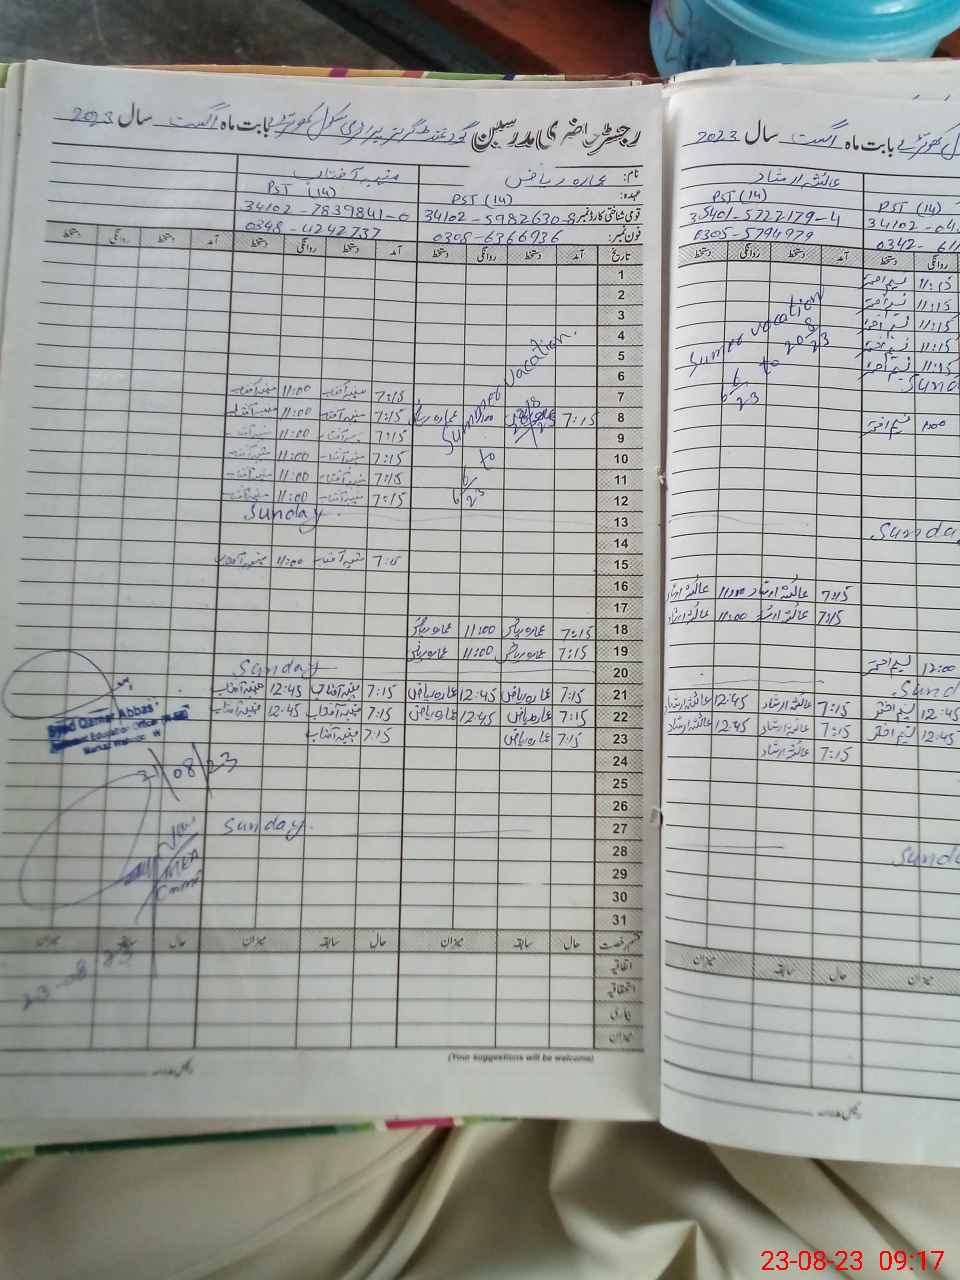 رجسٹر حاضری مدرسین گورنمنٹ گرلز پرائمری سکول بابت ماہ اگست سال 2023
نام: عمارہ ریاض منیبہ آفتاب
عہدہ: PST (14) PST (14)
قومی شناختی کارڈ نمبر 34102-5982630-8 34102-7839841-0
فون نمبر: 0308-6366936 0348-4242737
تاریخ آمد دستخط روانگی دستخط آمد دستخط روانگی دستخط آمد دستخط روانگی دستخط
1
2
3
4
5
6
7 7:15 منیبہ آفتاب 11:00 منیبہ آفتاب
8 7:15 عمارہ ریاض 7:15 منیبہ آفتاب 11:00 منیبہ آفتاب
9 7:15 منیبہ آفتاب 11:00 منیبہ آفتاب
10 7:15 منیبہ آفتاب 11:00 منیبہ آفتاب
11 7:15 منیبہ آفتاب 11:00 منیبہ آفتاب
12 7:15 منیبہ آفتاب 11:00 منیبہ آفتاب
Summer vacation.
to
13 Sunday
14
15 7:15 منیبہ آفتاب 11:00 منیبہ آفتاب
16
17
18 7:15 عمارہ ریاض 11:00 عمارہ ریاض
19 7:15 عمارہ ریاض 11:00 عمارہ ریاض
20 Sunday
21 7:15 عمارہ ریاض 12:45 عمارہ ریاض 7:15 منیبہ آفتاب 12:45 منیبہ آفتاب
22 7:15 عمارہ ریاض 12:45 عمارہ ریاض 7:15 منیبہ آفتاب 12:45 منیبہ آفتاب
23 7:15 عمارہ ریاض 7:15 منیبہ آفتاب
24
25
26
27 Sunday.
28
29
30
31
Syed Qamar Abbas
21/08/23
MEA
23-08-23
قسم رخصت حال سابقہ میزان حال سابقہ میزان حال سابقہ میزان
اتفاقیہ
استحقاقیہ
بیماری
میزان
(Your suggestions will be welcome)
بابت ماہ اگست سال 2023
عائشہ ارشاد
PST (14) PST (14)
35401-5722179-4 34102-04
0305-5794979 0342-61
آمد دستخط روانگی دستخط روانگی دستخط
11:15 نسیم اختر
11:15 نسیم اختر
11:15 نسیم اختر
11:15 نسیم اختر
11:15 نسیم اختر
Sund
نسیم اختر
Sumer vacation
to
Sunda
7:15 عائشہ ارشاد 11:00 عائشہ ارشاد
7:15 عائشہ ارشاد 11:00 عائشہ ارشاد
12:00 نسیم اختر
Sund
7:15 عائشہ ارشاد 12:45 عائشہ ارشاد 12:45 نسیم اختر
7:15 عائشہ ارشاد 12:45 عائشہ ارشاد 12:45 نسیم اختر
7:15 عائشہ ارشاد
Sund
حال سابقہ میزان
23-08-23 09:17